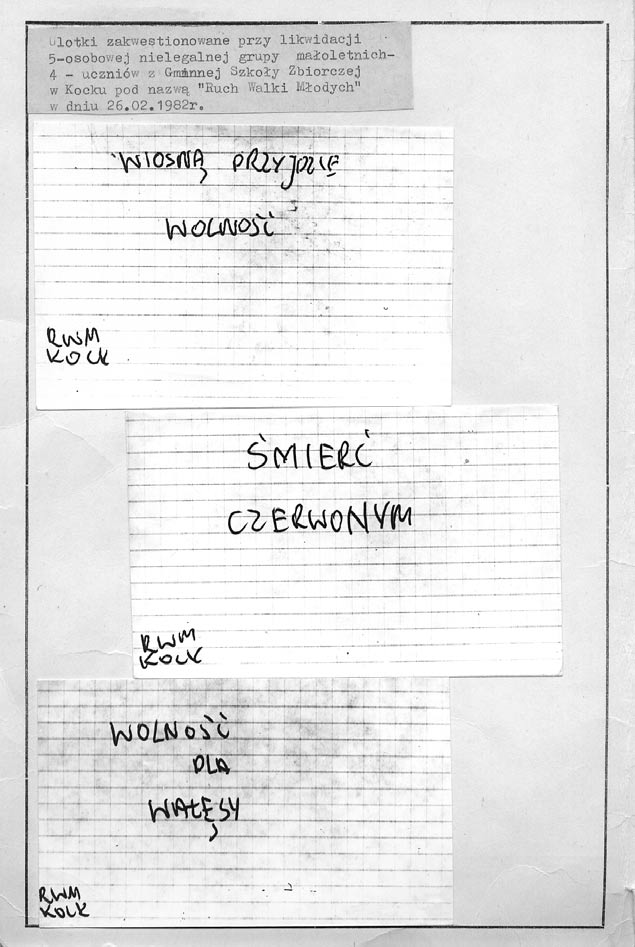 ulotki zakwestionowane przy likwidacji
5-osobowej nielegalnej grupy małoletnich-
4 - uczniów z Gminnej Szkoły Zbiorczej
w Kocku pod nazwą "Ruch Walki Młodych"
w dniu 26.02.1982r.
WIOSNĄ PRZYJDZIE
WOLNOŚĆ
RWM
KOCK
ŚMIERĆ
CZERWONYM
RWM
KOCK
WOLNOŚĆ
DLA
WAŁĘSY
RWM
KOCK